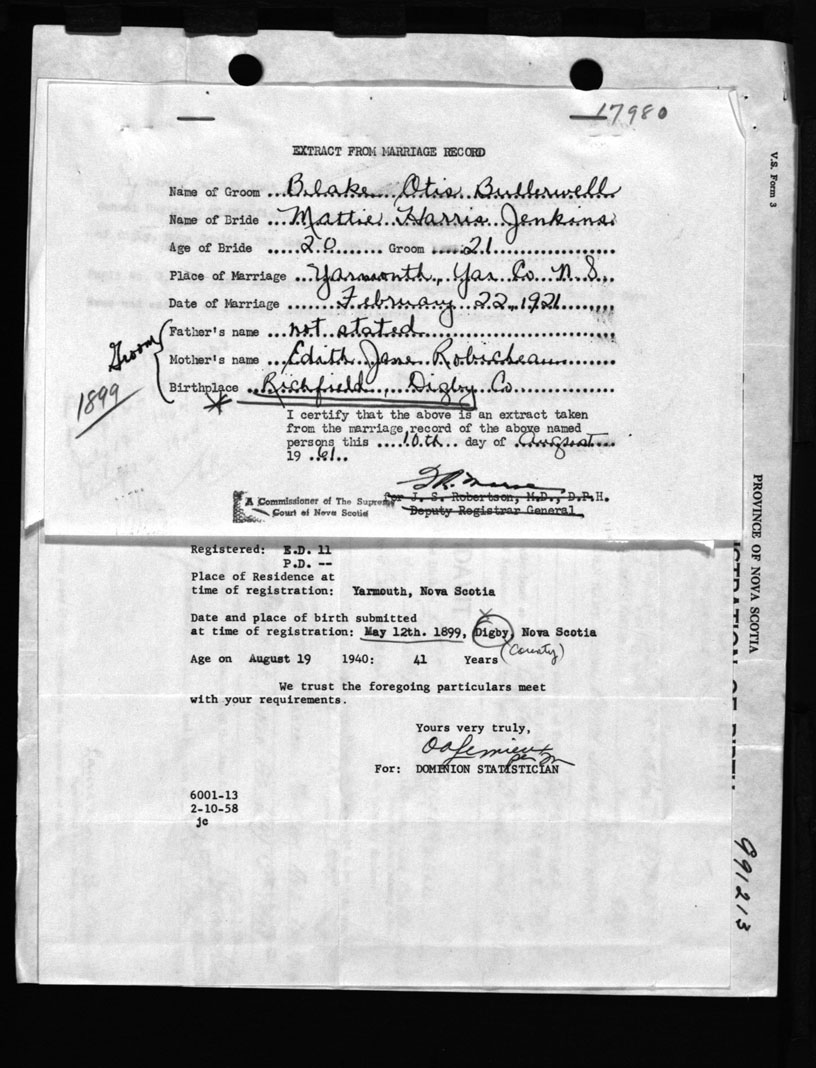 17980
EXTRACT FROM MARRIAGE RECORD
Name of Groom ...Blake Otis Butlerwell
Name of Bride ...Mattie Harris Jenkins
Age of Bride .....20....... Groom .....21..................
Place of Marriage ...Yarmouth, Yar Co. N.S.
Date of Marriage ......February 22, 1921......
Father's name ...not stated......
Groom
Mother's name ...Edith Jane Robicheau......
Birthplace ..Richfield, Digby Co..........
1899
I certify that the above is an extract taken
from the marriage record of the above named
persons this ....10th... day of .August...
19 .61..
for J. S. Robertson, M.D., D.P.H.
Deputy Registrar General
A Commissioner of The Supreme
Court of Nova Scotia
Registered: E.D. 11
P.D. --
Place of Residence at
time of registration: Yarmouth, Nova Scotia
Date and place of birth submitted
at time of registration: May 12th. 1899, Digby, Nova Scotia
(County)
Age on August 19 1940: 41 Years
We trust the foregoing particulars meet
with your requirements.
Yours very truly,
For: DOMINION STATISTICIAN
6001-13
2-10-58
jc
V.S. Form 3
PROVINCE OF NOVA SCOTIA
991213